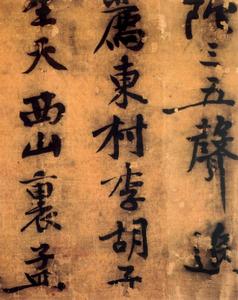 三五聲
薦東村李胡子
生天西山裏孟